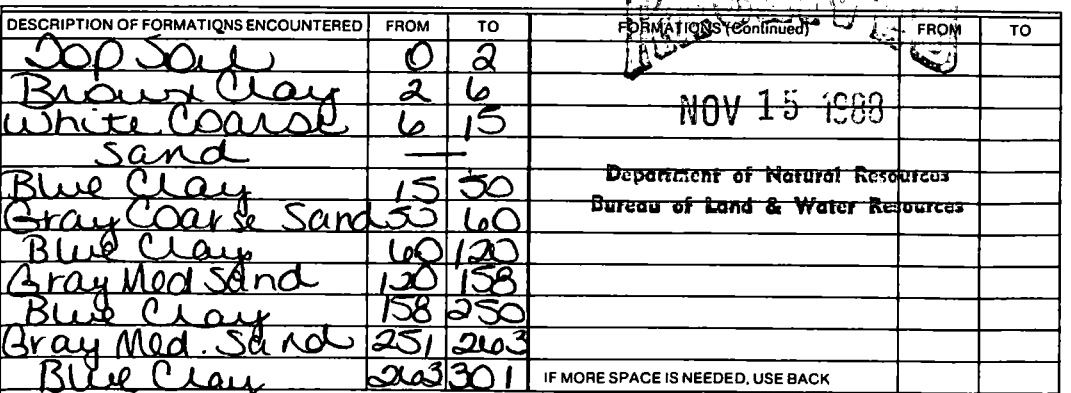 DESCRIPTION OF FORMATIONS ENCOUNTERED FROM TO FORMATIONS (Continued) FROM TO
Top Soil 0 2
Brown Clay 2 6
NOV 15 1988
White Coarse 6 15
Sand —
Department of Natural Resources
Blue Clay 15 50
Bureau of Land & Water Resources
Gray Coarse Sand 50 60
Blue Clay 60 120
Gray Med Sand 120 158
Blue Clay 158 250
Gray Med. Sand 251 263
Blue Clay 263 301 IF MORE SPACE IS NEEDED, USE BACK